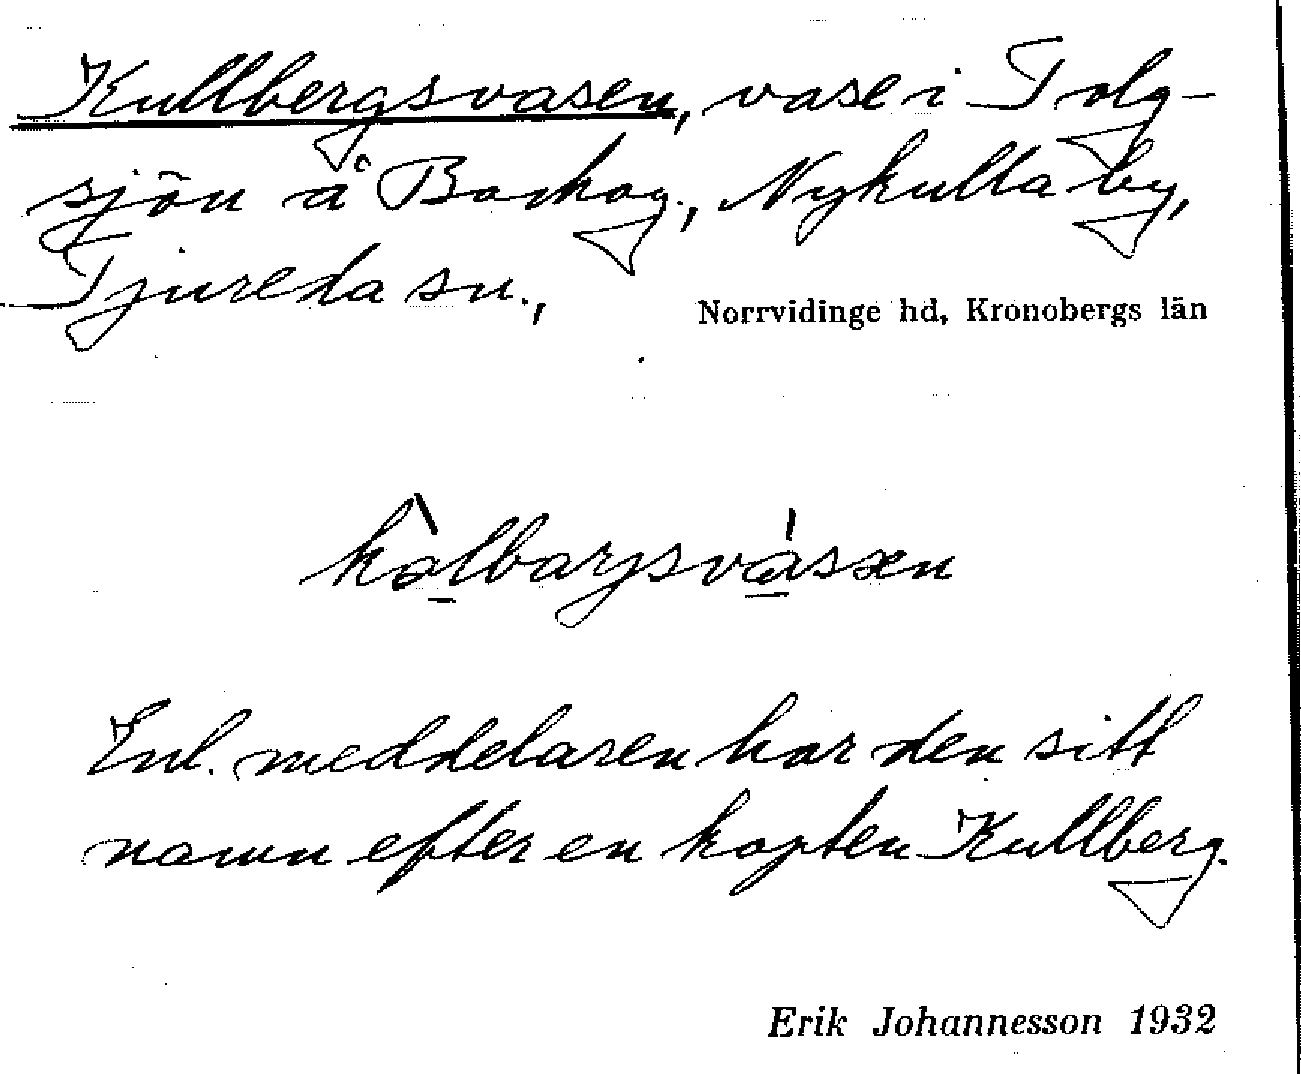 Kullbergsvasen, vase i Tolg-
sjön å Backag., Nykulla by,
Tjureda sn.,
Norrvidinge hd, Kronobergs län
Enl. meddelaren har den sitt
namn efter en kapten Kullberg.
Erik Johannesson 1932